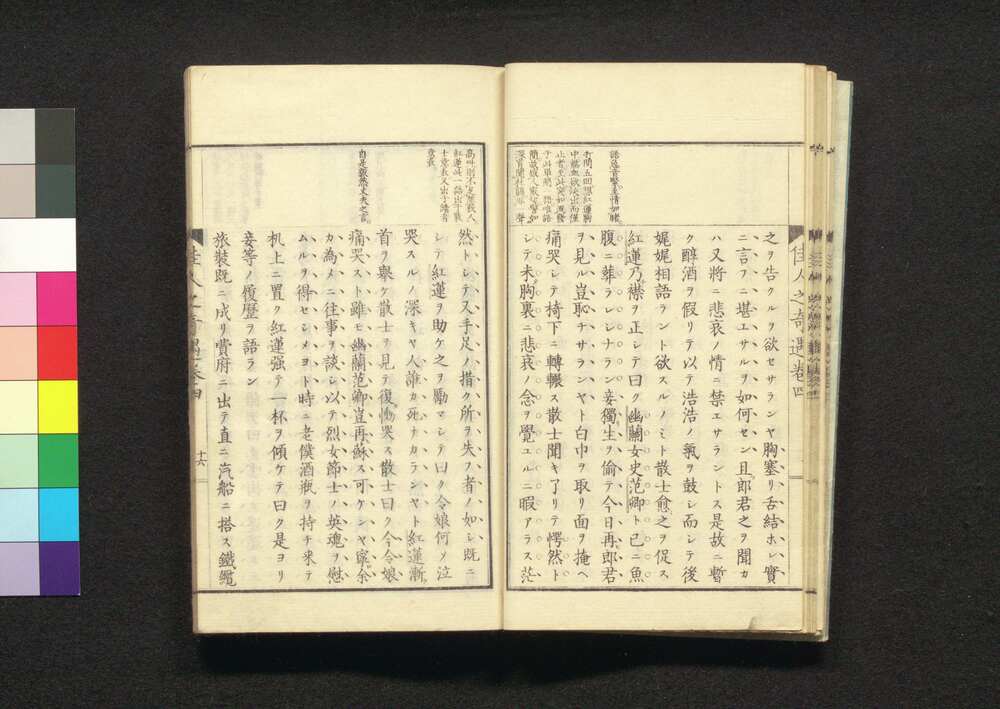 佳人之奇遇卷四
之ヲ告クルヲ欲セサランヤ胸塞リ舌結ホレ實
ニ言フニ堪エサルヲ如何セン且郎君之ヲ聞カ
ハ又將ニ悲哀ノ情ニ禁エサラントス是故ニ暫
ク醇酒ヲ假リテ以テ浩浩ノ氣ヲ鼓シ而シテ後
娓娓相語ラント欲スルノミト散士愈之ヲ促ス
紅蓮乃襟ヲ正シテ曰ク幽蘭女史范卿ト已ニ魚
腹ニ葬ラレシナラン妾獨生ヲ偷テ今日再郎君
ヲ見ル豈恥チサランヤト白巾ヲ取リ面ヲ掩ヘ
痛哭シテ椅下ニ轉輾ス散士聞キ了リテ愕然ト
シテ未胸裏ニ悲哀ノ念ヲ覺ユルニ暇アラス茫
然トシテ又手足ノ措ク所ヲ失フ者ノ如シ既ニ
シテ紅蓮ヲ助ケ之ヲ勵マシテ曰ク令娘何ソ泣
哭スルノ深キヤ人誰カ死ナカランヤト紅蓮漸
首ヲ擧ケ散士ヲ見テ復慟哭ス散士曰ク今令娘
痛哭スト雖モ幽蘭范卿豈再蘇ス可ケンヤ寧余
カ為メニ往事ヲ談シ以テ烈女節士ノ英魂ヲ慰
ムルヲ得セシメヨト時ニ老僕酒瓶ヲ持チ来テ
机上ニ置ク紅蓮强テ一杯ヲ傾ケテ曰ク是ヨリ
妾等ノ履歷ヲ語ラン
旅裝既ニ成リ費府ニ出テ直ニ汽船ニ搭ス鐵纜
自是毅然丈夫之言
十六